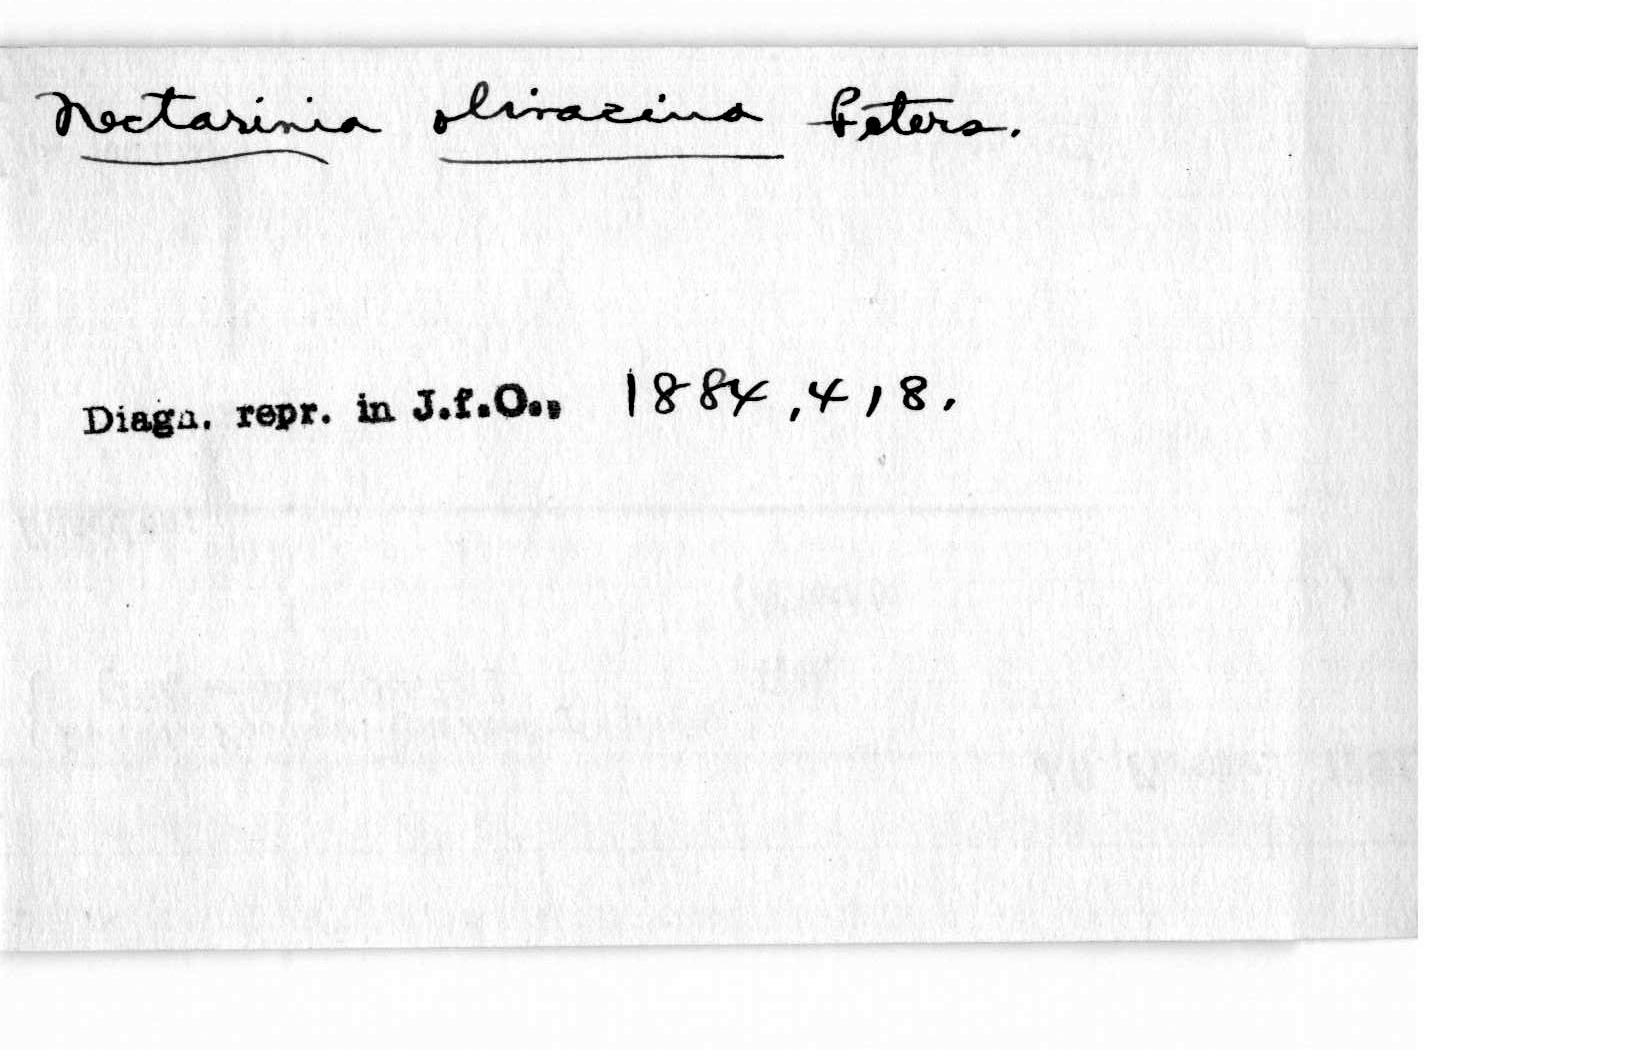 Nectarinia olivacina Peters.
Diagn. repr. in J.f.O., 1884, 418.